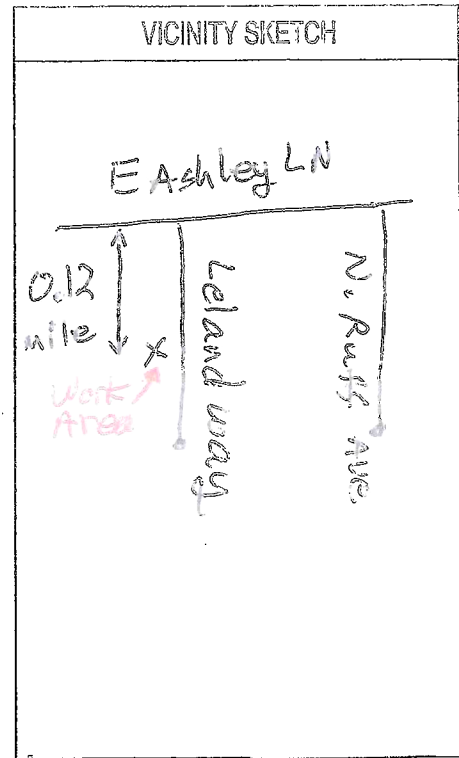 VICINITY SKETCH
E Ashley LN
0.12
mile
X
Work
Area
Leland way
N. Ruff Ave.